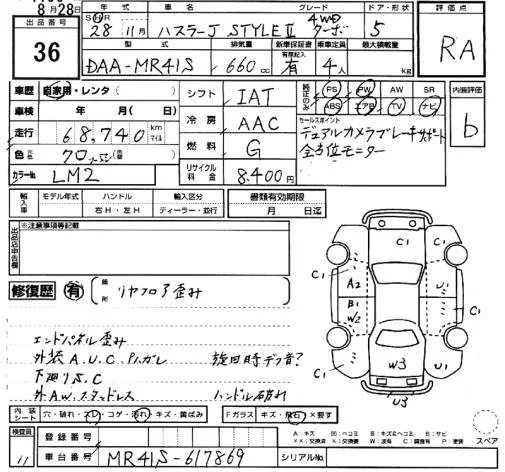 8月28日
出品番号
36
年式
車名
グレード
ドア・形状
評価点
28年 11月 ハスラーJ STYLEⅡ 4WD ターボ 5
RA
型式
排気量
新車保証書
乗車定員
最大積載量
有無記入
DAA-MR41S 660cc 有 4人 kg
車歴 自家用・レンタ( )
車検 年 月( 日)
走行 68,740 km マイル
色 元色 クロ
カラーNo. LM2
シフト IAT
冷房 AAC
燃料 G
リサイクル料金 8.400円
純正のみ PS PW AW SR
ABS エアB TV ナビ
内装評価
b
セールスポイント
デュアルカメラブレーキサポート
全方位モニター
輸入車
モデル年式
ハンドル
右H・左H
輸入区分
ディーラー・並行
書類有効期限
月 日迄
出品店申告欄
※注意事項等記載
修復歴 有 箇所 リヤフロア歪み
エンドパネル歪み
外装A.U.C.Pハガレ 旋回時デフ音?
下廻りS.C
外AW.スタッドレス ハンドル破れ
C1
C1
C1
A2
U1
B1
W2
C1
C1
W3
U1
U3
内装シート 穴・破れ・スレ・コゲ・汚れ・キズ・黄ばみ
Fガラス キズ・飛石・×要す
検査員
登録番号
車台番号 MR41S-617869
シリアルNo.
A：キズ U：ヘコミ B：キズ&ヘコミ S：サビ
××：交換済 X：交換要 W：波有 C：腐蝕有 P：塗装
スペア